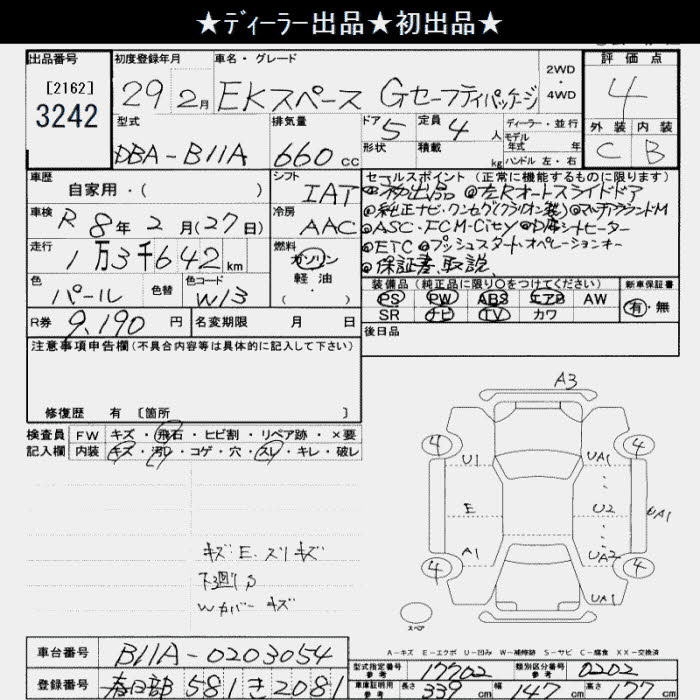 ★ディーラー出品★初出品★
出品番号
[2162]
3242
初度登録年月
29年2月
車名・グレード
EKスペース Gセーフティパッケージ
2WD
4WD
評価点
4
外装 内装
C B
型式
DBA-B11A
排気量
660cc
ドア 5
定員 4人
ディーラー・並行
モデル年式 年
形状
積載 kg
ハンドル 左・右
車歴
自家用・( )
シフト
IAT
セールスポイント (正常に機能するものに限ります)
◎初出品 ◎左Rオートスライドドア
◎純正ナビ・ワンセグ(クラリオン製) ◎マルチアラウンドM
◎ASC・FCM-City ◎D席シートヒーター
◎ETC ◎プッシュスタート・オペレーションキー
◎保証書、取説
車検
R8年2月(27日)
冷房
AAC
走行
1万3千642km
燃料
ガソリン
軽油
( ・ )
色
パール
色替
色コード
W13
装備品 (純正品に限り○をつけてください)
PS PW ABS エアB AW
SR ナビ TV カワ
新車保証書
有・無
R券 9,190円
名変期限 月 日
後日品
注意事項申告欄(不具合内容等は具体的に記入して下さい)
修復歴 有 〔箇所 〕
検査員 FW キズ・飛石・ヒビ割・リペア跡・×要
記入欄 内装 キズ・汚れ・コゲ・穴・スレ・キレ・破レ
A3
4 4
U1 UA1
E U2 UA1
A1 UA2
4 4
UA1
スペア
キズ・E・スリキズ
下廻りS
Wカバーキズ
A-キズ E-エクボ U-凹み W-補修跡 S-サビ C-腐食 XX-交換済
車台番号 B11A-0203054
型式指定番号 参考 17702
類別区分番号 参考 0202
登録番号 春日部 581 き 2081
車庫証明用 参考 長さ 339cm 幅 147cm 高さ 177cm